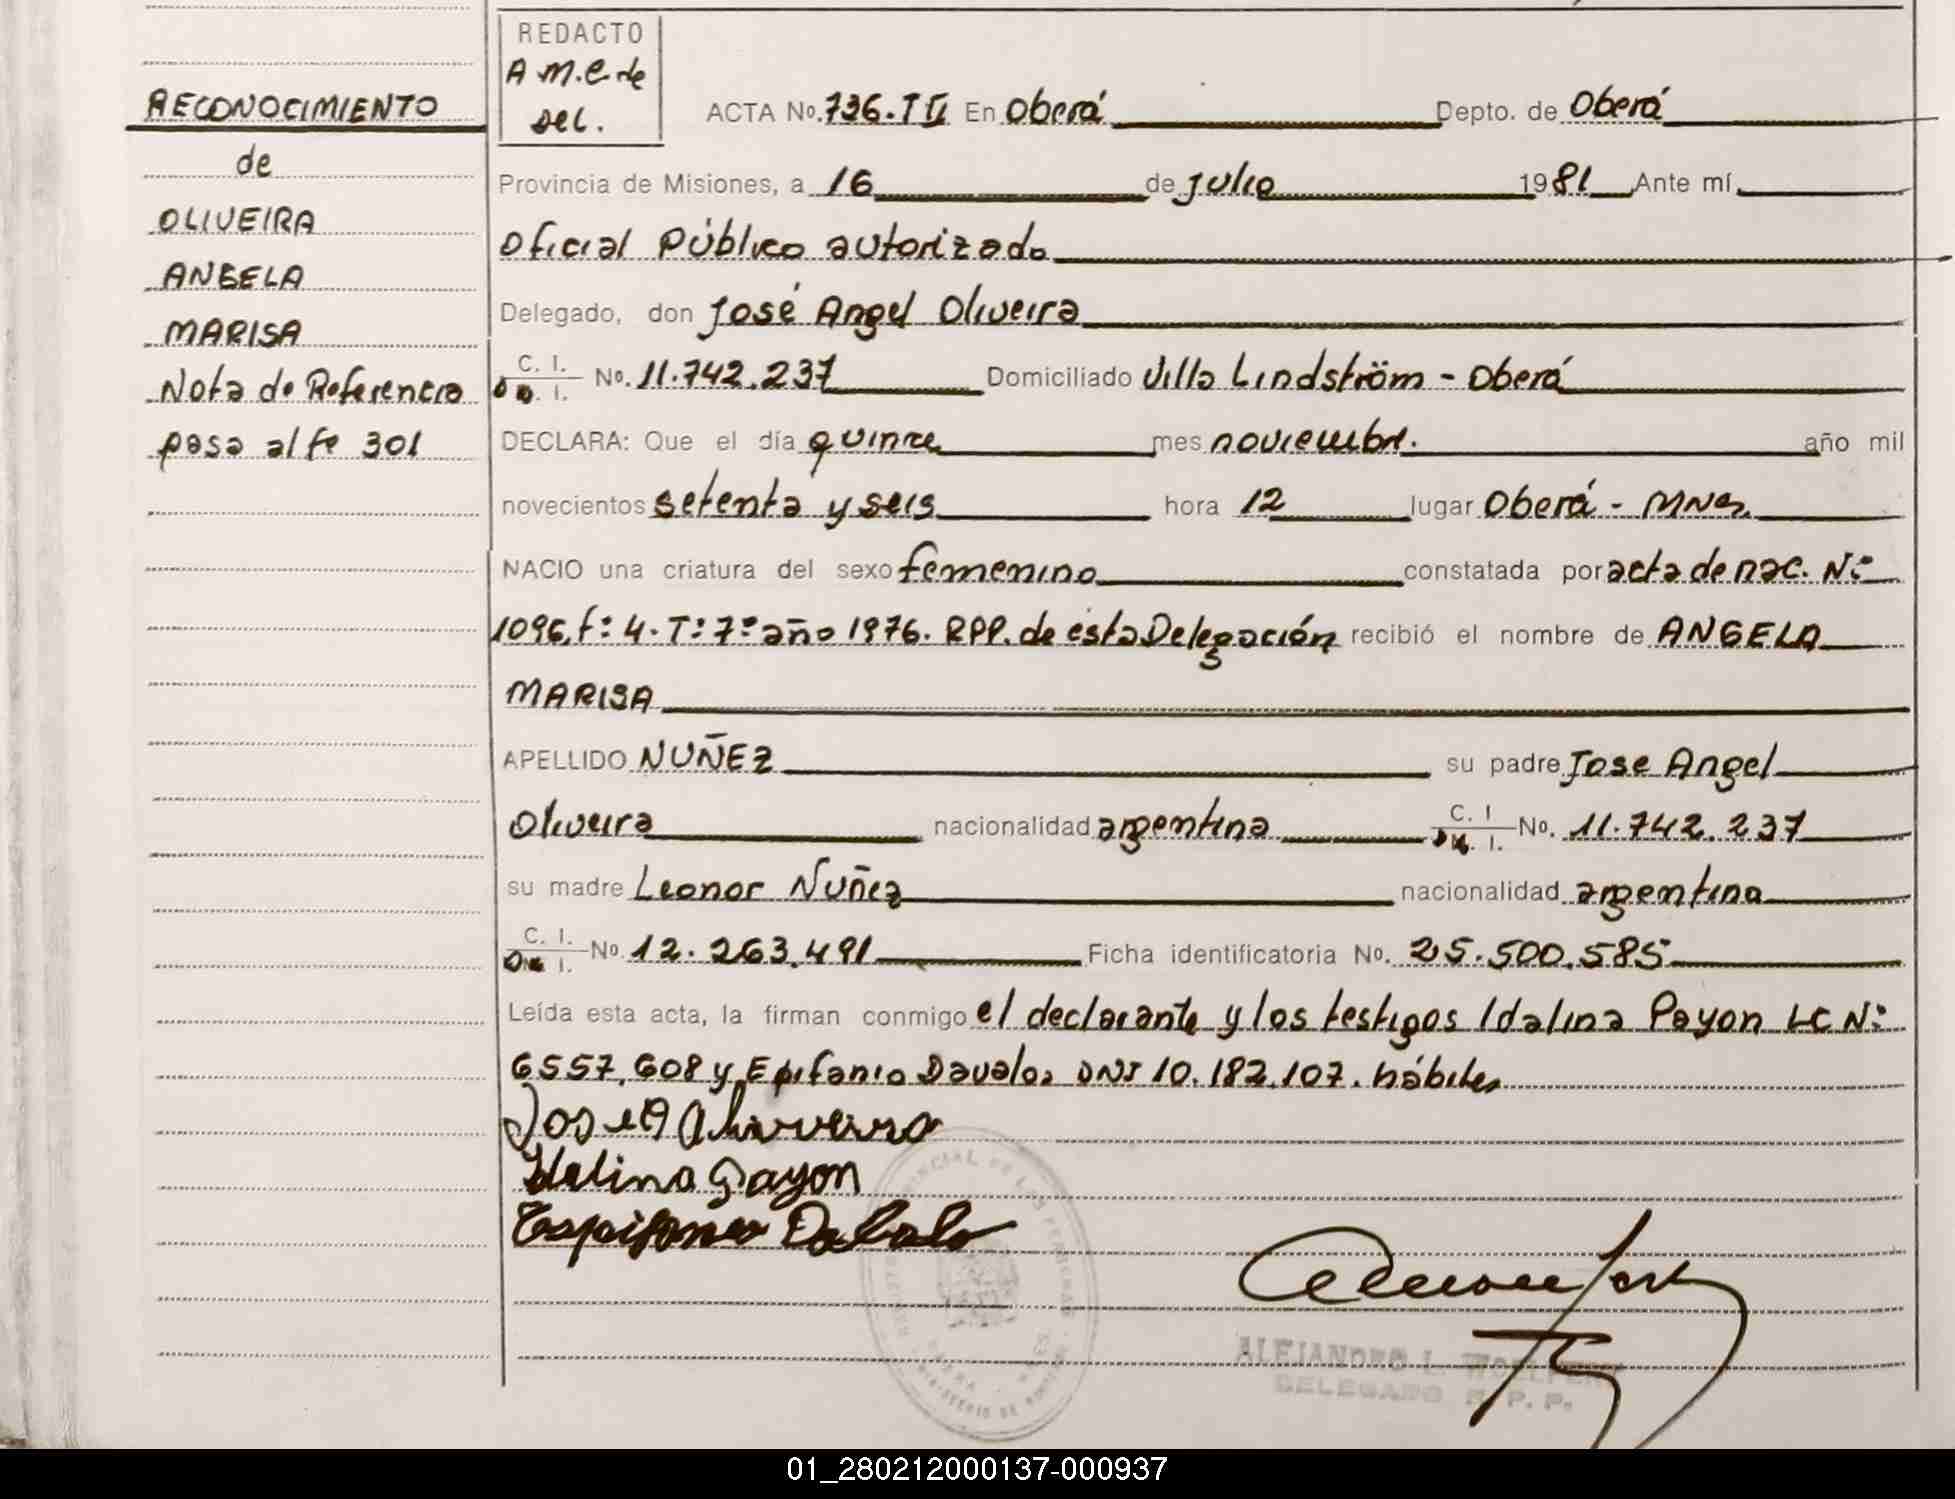 RECONOCIMIENTO
de
OLIVEIRA
ANGELA
MARISA
Nota de Referencia
pasa al fº 301
REDACTO
A M.C de
sel.
ACTA No. 736.TII En Oberá Depto. de Oberá
Provincia de Misiones, a 16 de Julio 1981 Ante mí
Oficial Público autorizado
Delegado, don José Angel Oliveira
C. I. D.N. I. No. 11.742.237 Domiciliado Villa Lindström - Oberá
DECLARA: Que el día quince mes noviembre. año mil
novecientos setenta y seis hora 12 lugar Oberá - MNes.
NACIO una criatura del sexo femenino constatada por acta de nac. Nº
1096, fº 4. Tº 7º año 1976. RPP. de esta Delegación recibió el nombre de ANGELA
MARISA
APELLIDO NUÑEZ su padre Jose Angel
Oliveira nacionalidad argentina C. I D.N. I. No. 11.742.237
su madre Leonor Nuñez nacionalidad argentina
C. I. D.N. I. No 12.263.491 Ficha identificatoria No. 25.500.585
Leída esta acta, la firman conmigo el declarante y los testigos Idalina Payon LC Nº
6557.608 y Epifanio Davalos DNI 10.182.107. hábiles
José A Oliveira
Idelina Gayon
ALEJANDRO L.
DELEGADO R. P. P.
01_280212000137-000937